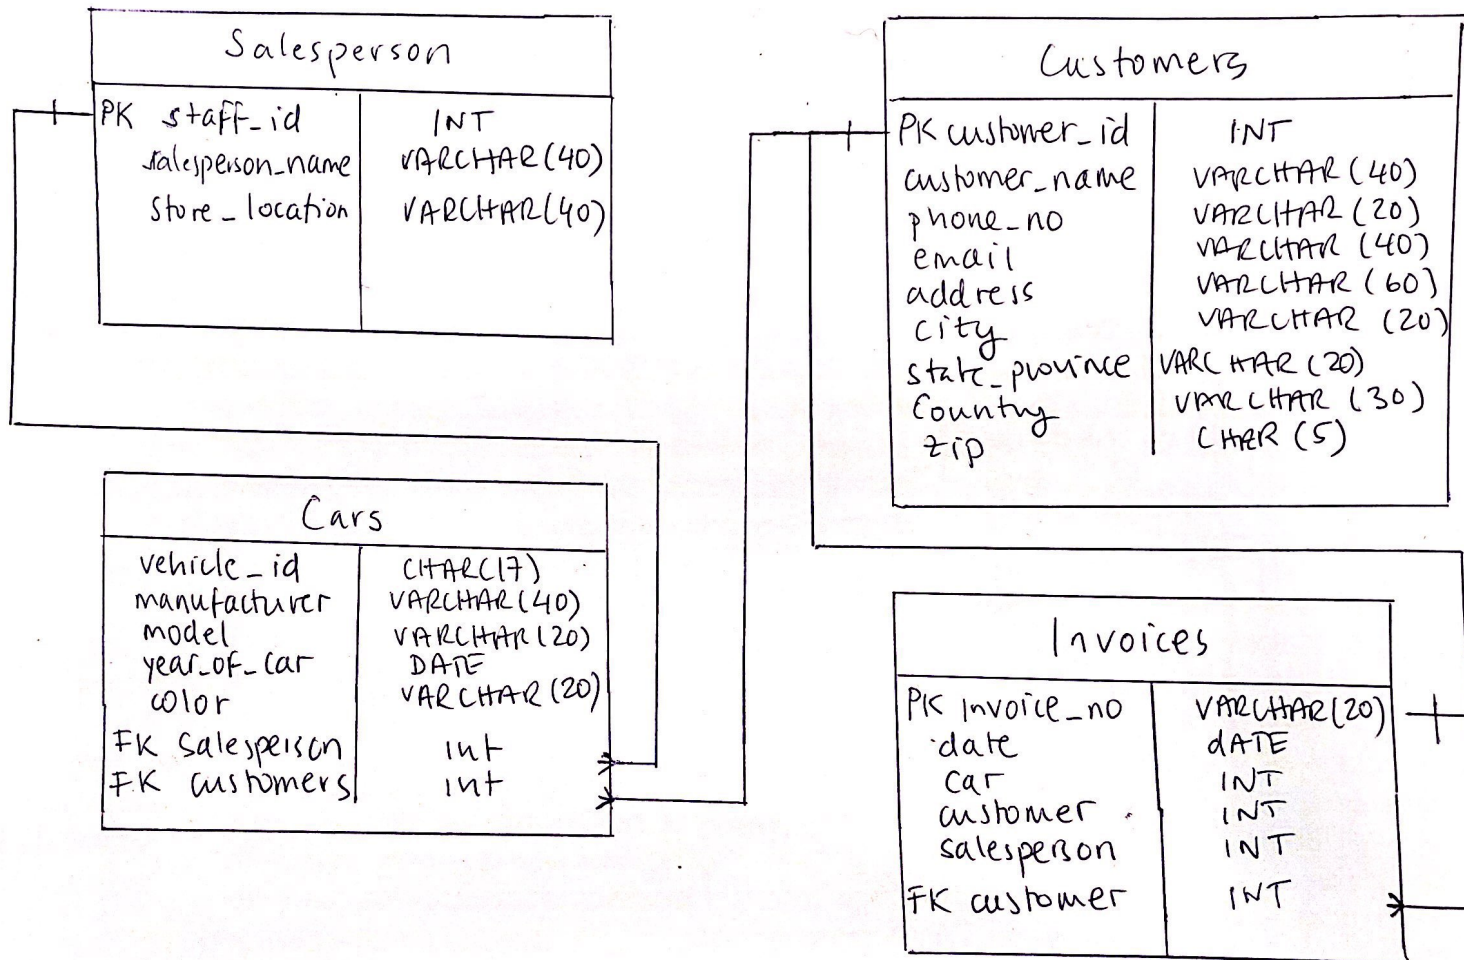 Salesperson
PK staff_id INT
salesperson_name VARCHAR(40)
store_location VARCHAR(40)
Customers
PK customer_id INT
customer_name VARCHAR(40)
phone_no VARCHAR(20)
email VARCHAR(40)
address VARCHAR(60)
city VARCHAR(20)
state_province VARCHAR(20)
Country VARCHAR(30)
zip CHAR(5)
Cars
vehicle_id CHAR(17)
manufacturer VARCHAR(40)
model VARCHAR(20)
year_of_car DATE
color VARCHAR(20)
FK Salesperson int
FK customers int
Invoices
PK Invoice_no VARCHAR(20)
date dATE
car INT
customer INT
salesperson INT
FK customer INT